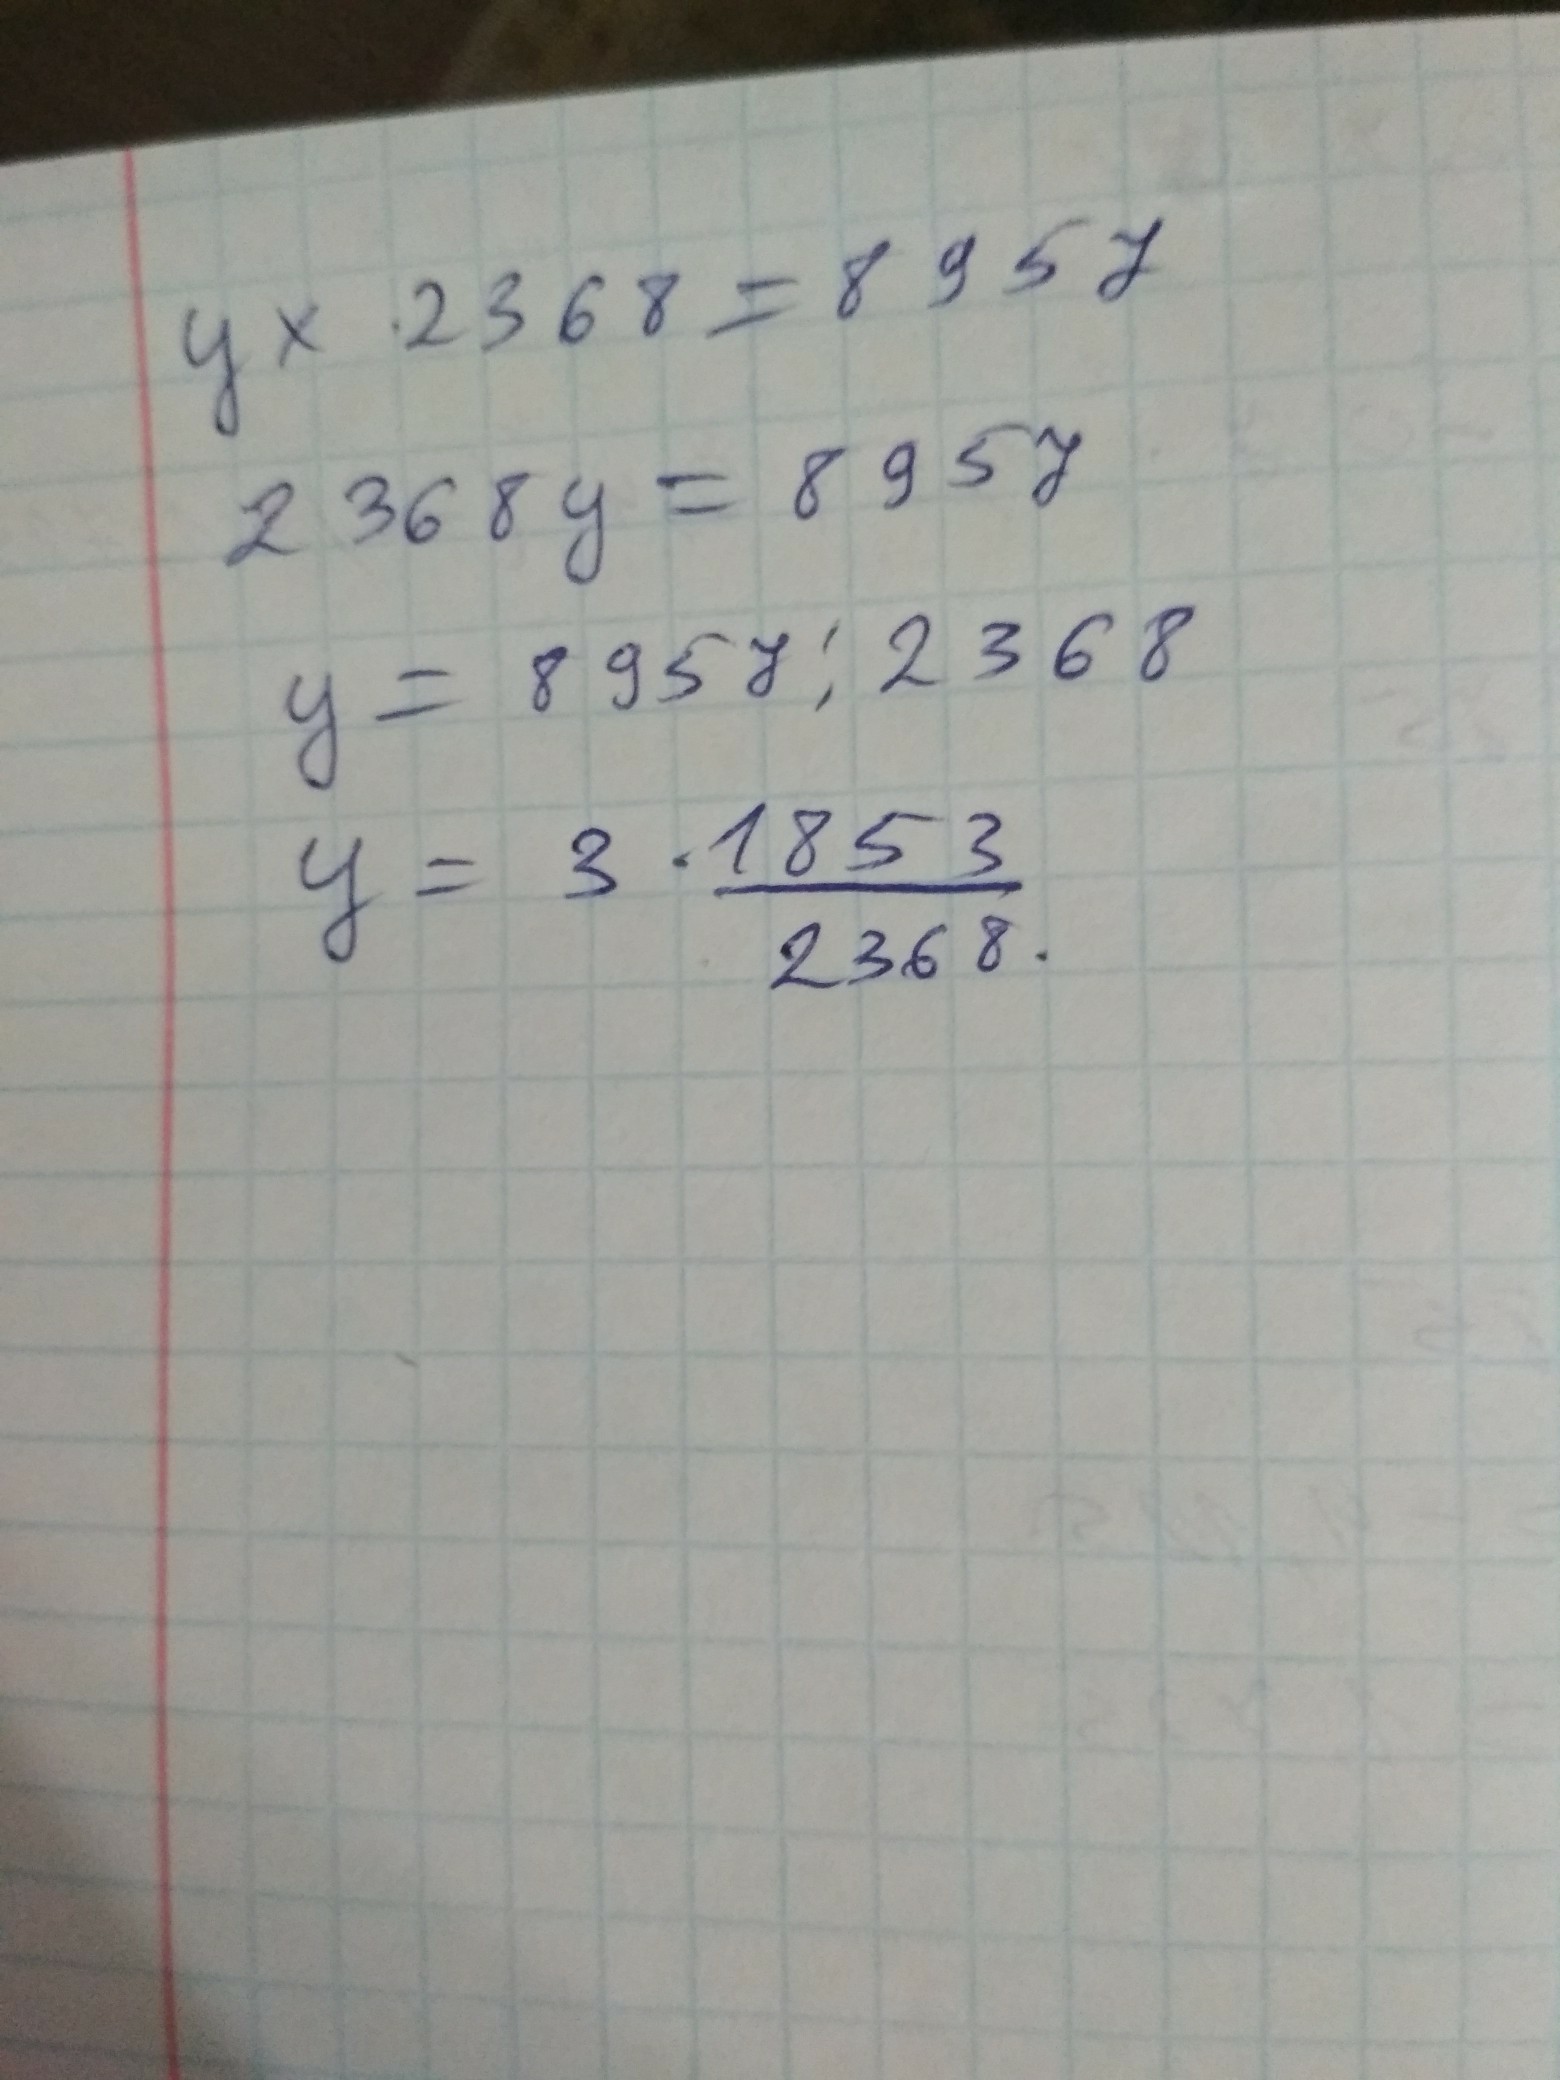 y x .2368 = 8957
2368y = 8957
y = 8957 : 2368
y = 3 · 1853/2368.